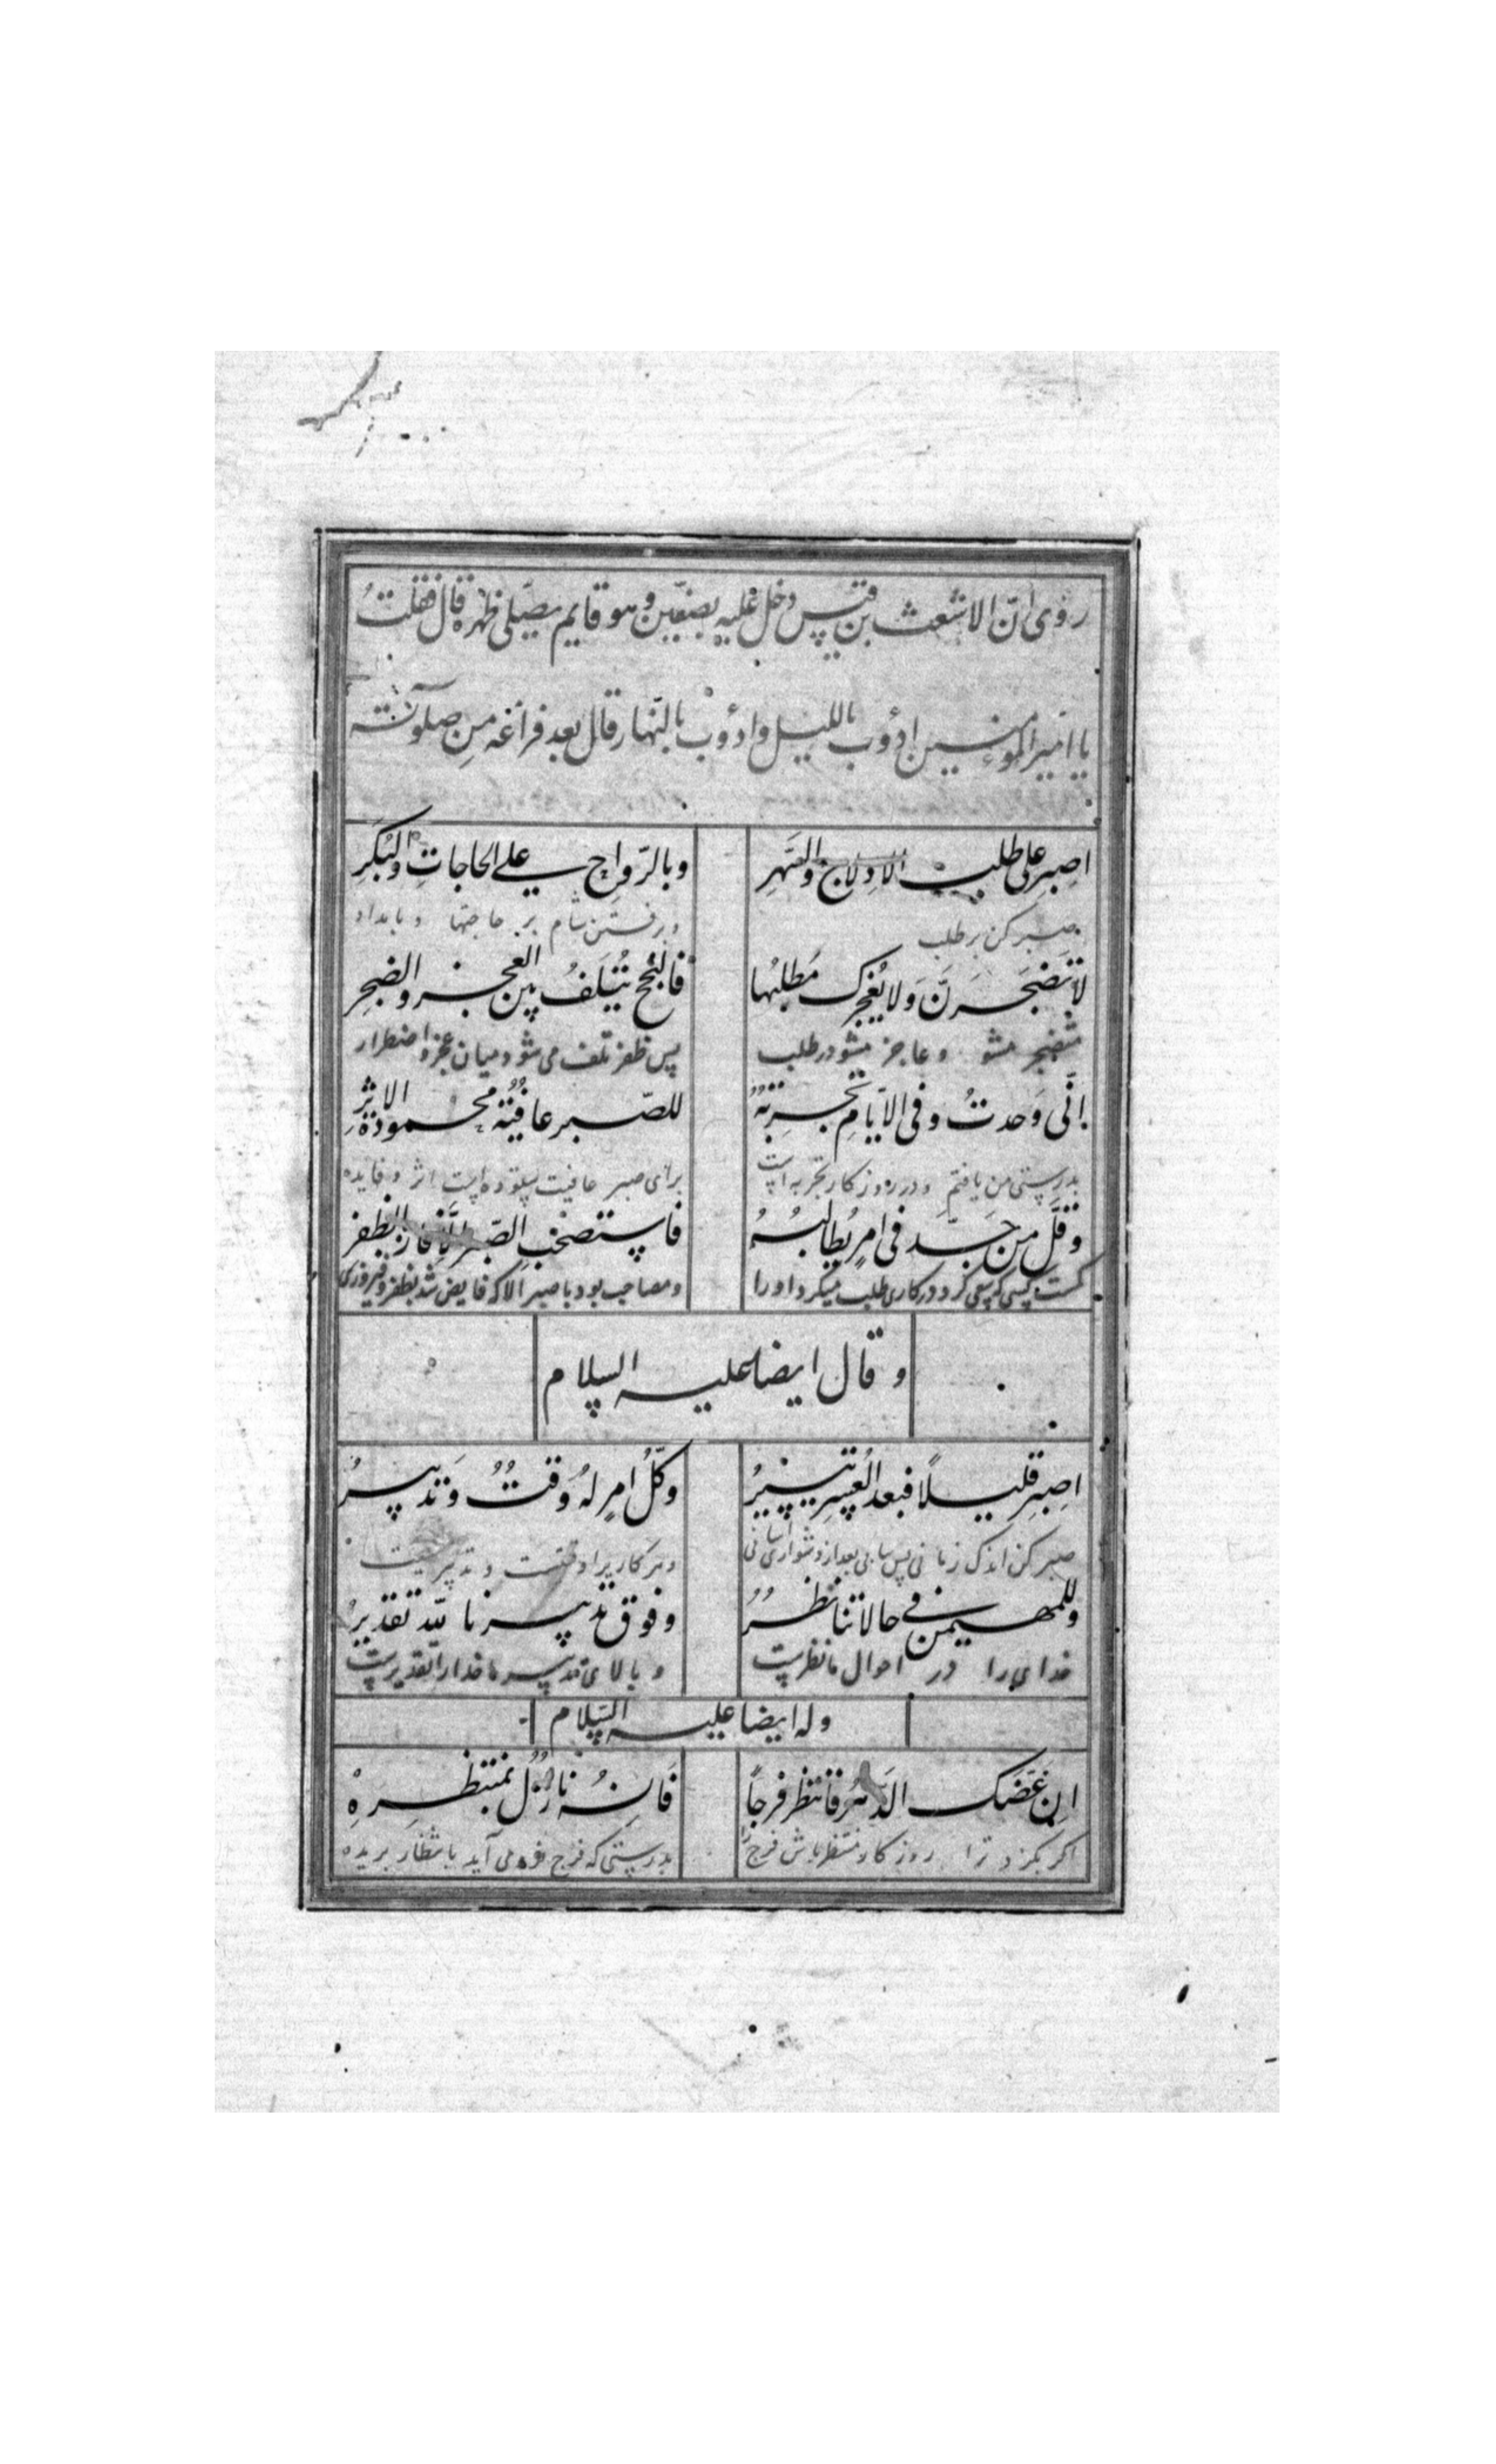 روی ان الاشعث بن قیس دخل علیه بصفین وهو قایم یصلی ظهره قال فقلت
یا امیر المومنین ادؤوب باللیل وادؤوب بالنهار قال بعد فراغه من صلوته
اصبر علی طلب الادلاج والسهر وبالرواح علی الحاجات والبکر
صبر کن بر طلب وبرفتن شام بر حاجتها وبامداد
لا تضجرن ولا یعجزک مطلبها فالنجح یتلف بین العجز والضجر
متضجر مشو وعاجز مشو در طلب پس ظفر تلف می شود میان عجز واضطرار
انی وجدت وفی الایام تجربة للصبر عاقبة محمودة الاثر
بدرستی من یافتم ودر روزکار تجربه است برای صبر عاقبت ستوده است اثر وفایده
وقل من جد فی امر یطالبه فاستصحب الصبر الا فاز بالظفر
کمست کسی که سعی کرد در کاری طلب میکرد اورا ومصاحب بود با صبر الا که فایض شد بظفر وفیروزی
وقال ایضا علیه السلام
اصبر قلیلًا فبعد العسر تیسیرُ وکلُّ امرٍ لهُ وقتٌ وَتدبیرُ
صبر کن اندک زمانی پس بعد از دشواری آسانی وهر کاریرا وقتست وتدبیریست
وللمهیمن فی حالاتنا نظرٌ وفوق تدبیرنا لله تقدیرُ
خدای را در احوال ما نظریست وبالای تدبیر ما خدارا تقدیریست
وله ایضا علیه السلام
ان عضک الدهر فانتظر فرجاً فانه نازلٌ بمنتظره
اکر بکزد ترا روزکار منتظر باش فرج را بدرستی که فرج فرو می آید بانتظار برنده